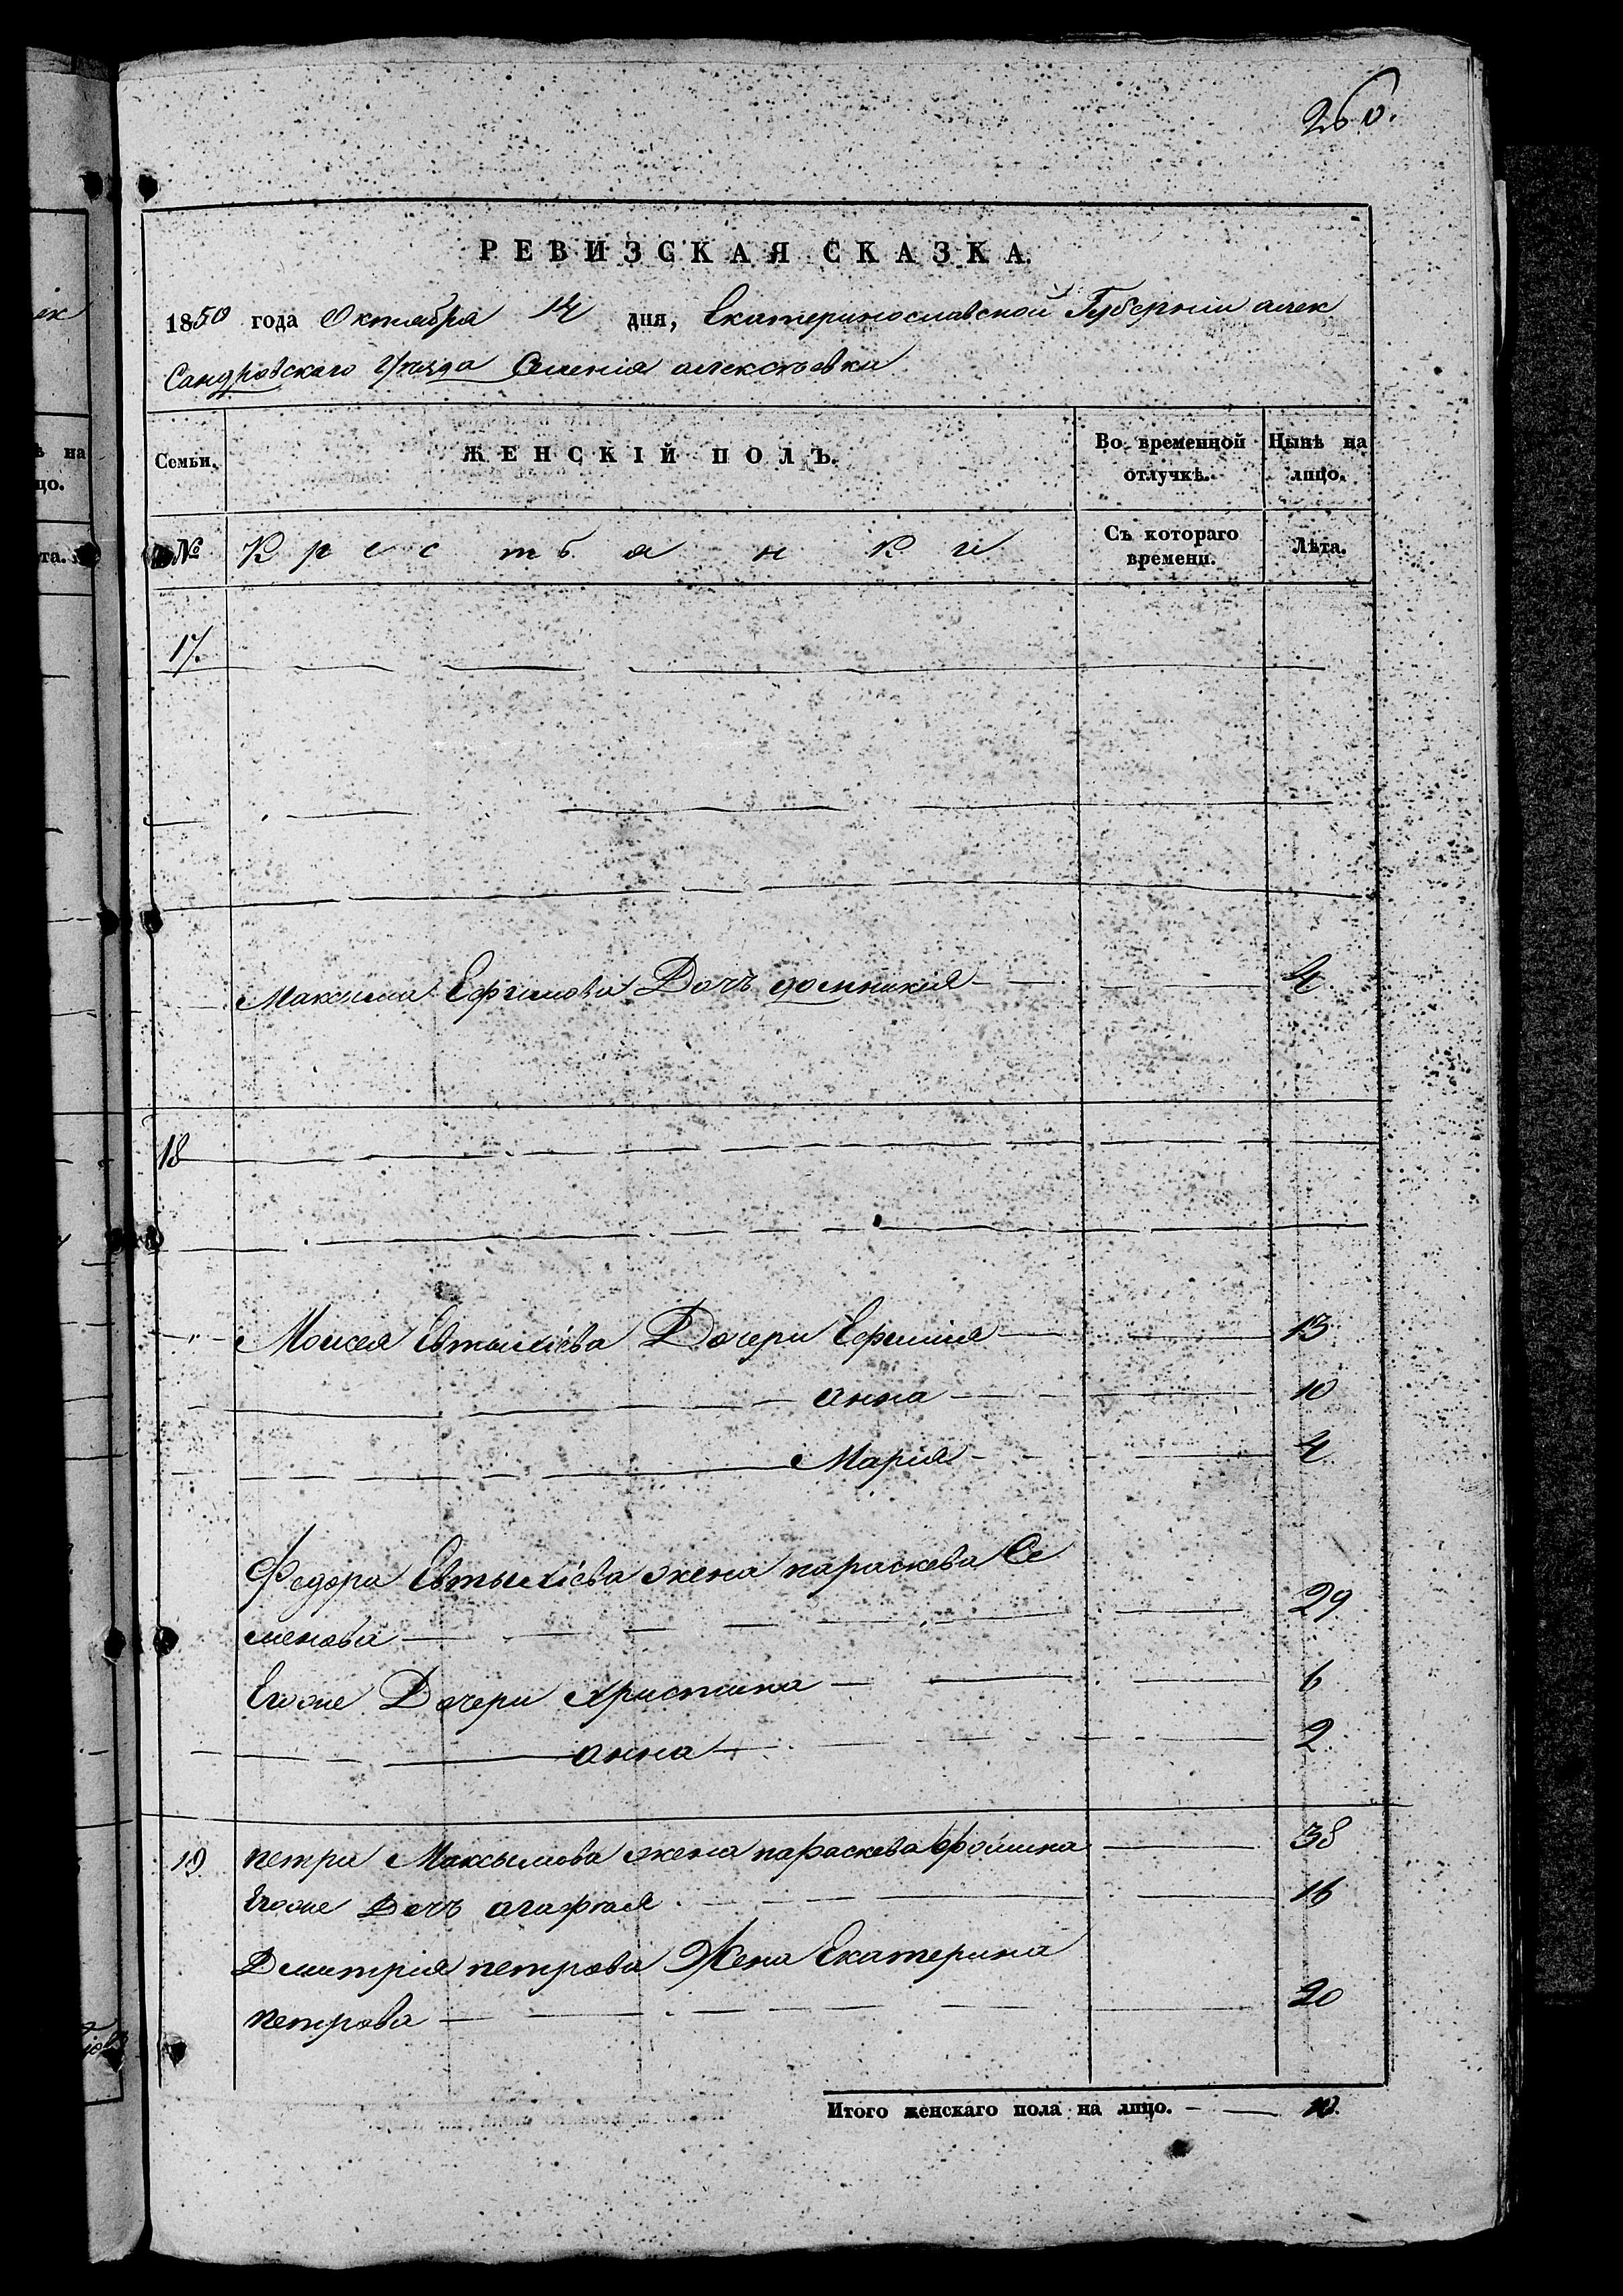 260.
РЕВИЗСКАЯ СКАЗКА.
1850 года Октября 14 дня, Екатеринославской Губерніи алек
Сандровскаго Уѣзда Селенія алексѣевки
Семьи. ЖЕНСКІЙ ПОЛЪ. Во временной отлучкѣ. Нынѣ на лицо.
№ Крестьянки Съ котораго времени. Лѣта.
17.
Максима Ефимова Дочь домникія 4
18
Моисея Евтыхіева Дочери Ефимія 13
анна 10
Марія 4
Федора Евтыхіева жена параскева Се
менова 29
Егоже Дочери христина 6
анна 2
19 петра Максымова жена параскева фомина 38
Егоже Дочь агафія 16
Дмитрія петрова Жена Екатерина
петрова 20
Итого женскаго пола на лицо. 10.